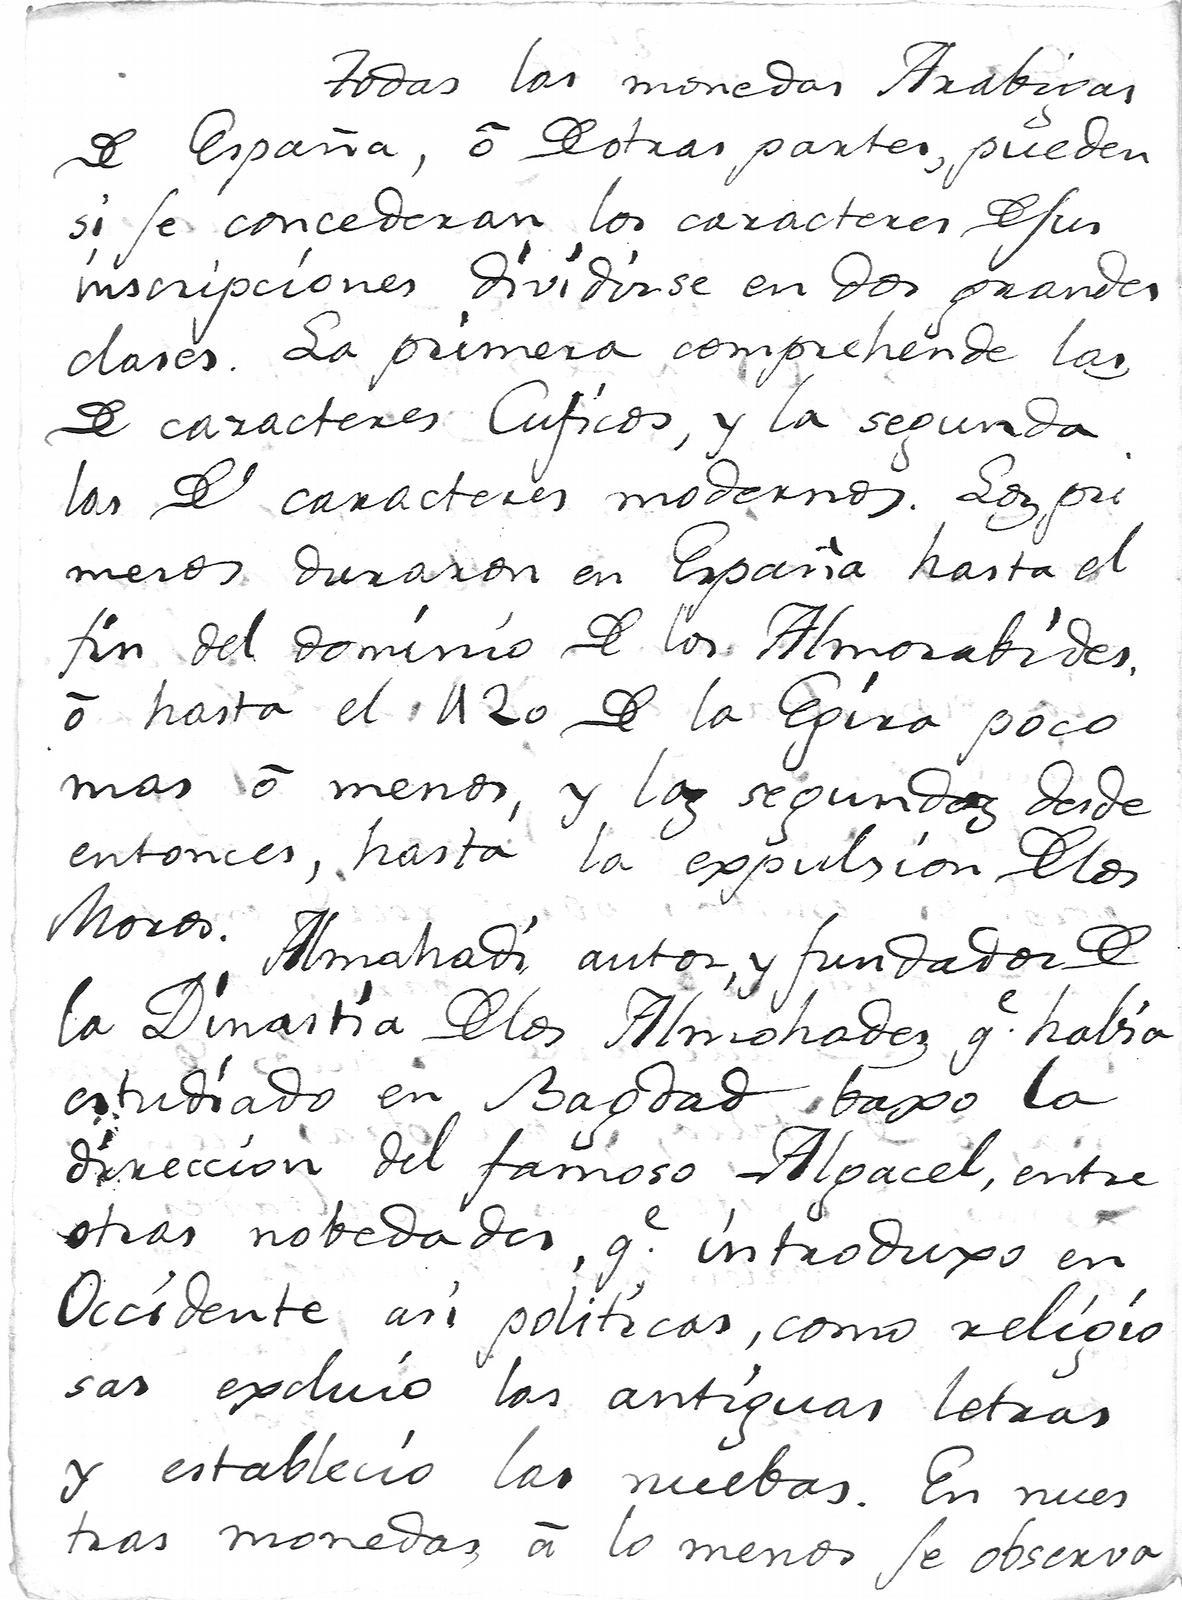 todas las monedas Arabigas
de España, ō de otras partes, pueden
si se concederan los caracteres de sus
inscripciones dividirse en dos grandes
clases. La primera comprehende las
de caracteres Cuficos, y la segunda
las de caracteres modernos. Los pri
meros duraron en España hasta el
fin del dominio de los Almorabides.
ō hasta el 1120 de la Egira poco
mas ō menos, y las segundas desde
entonces, hasta la expulsion de los
Moros. Almahadi autor, y fundador de
la Dinastia de los Almohades q.e habia
estudiado en Bagdad baxo la
direccion del famoso Algacel, entre
otras nobedades, q.e introduxo en
Occidente asi politicas, como religio
sas excluio las antiguas letras
y establecio las nuebas. En nues
tras monedas ā lo menos se observa